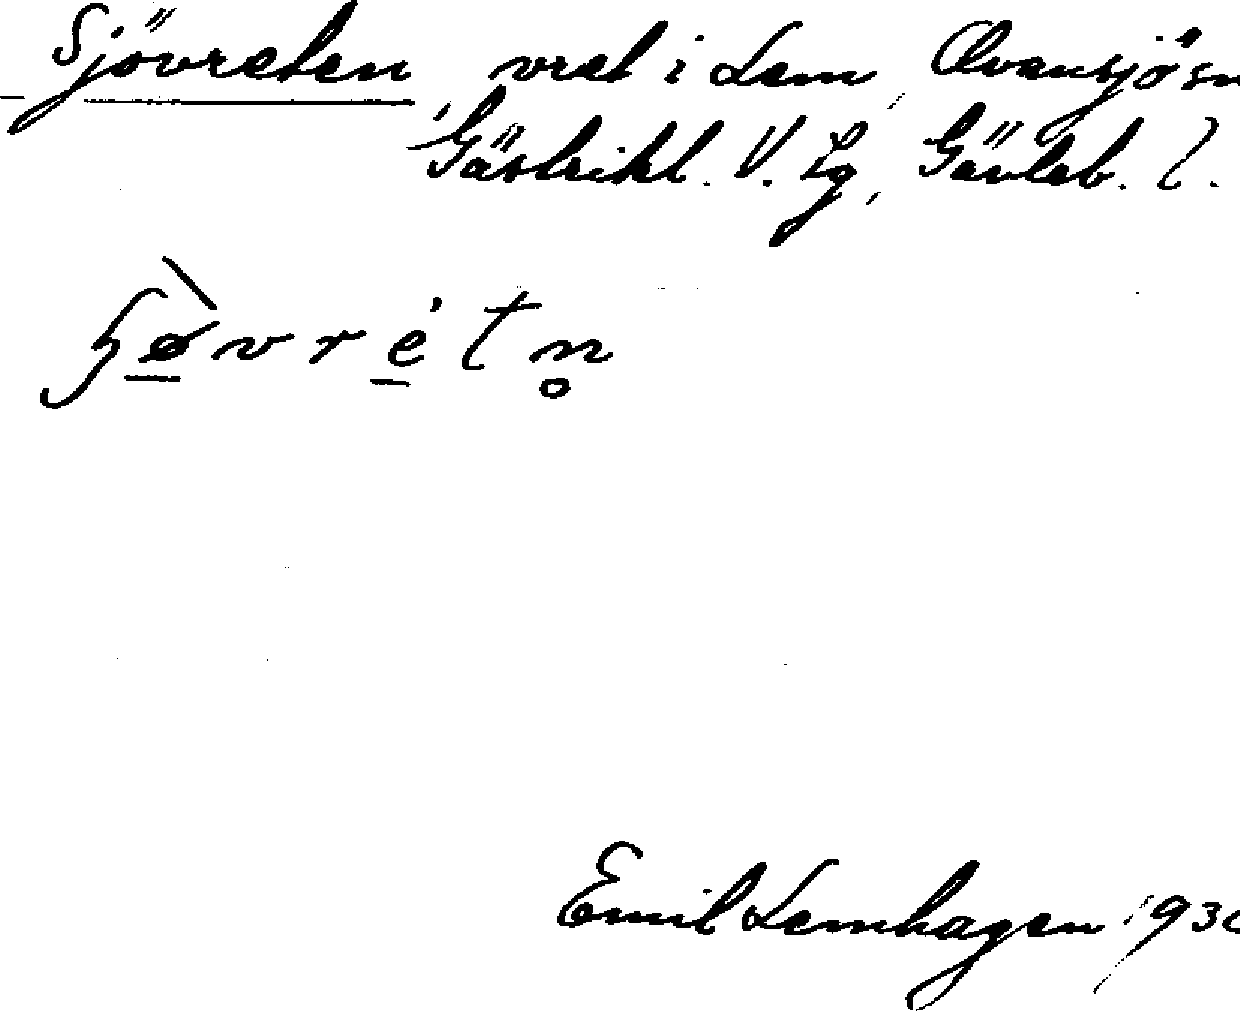 Sjövreten vret i Lem, Ovansjö sn
Gästrikl. V. Lg, Gävleb. l.
Emil Lemhagen 193